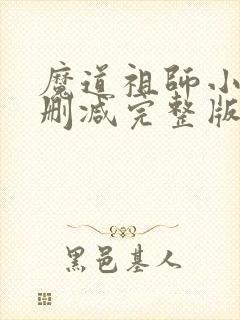 魔道祖師小
刪减完整版
黑邑基人